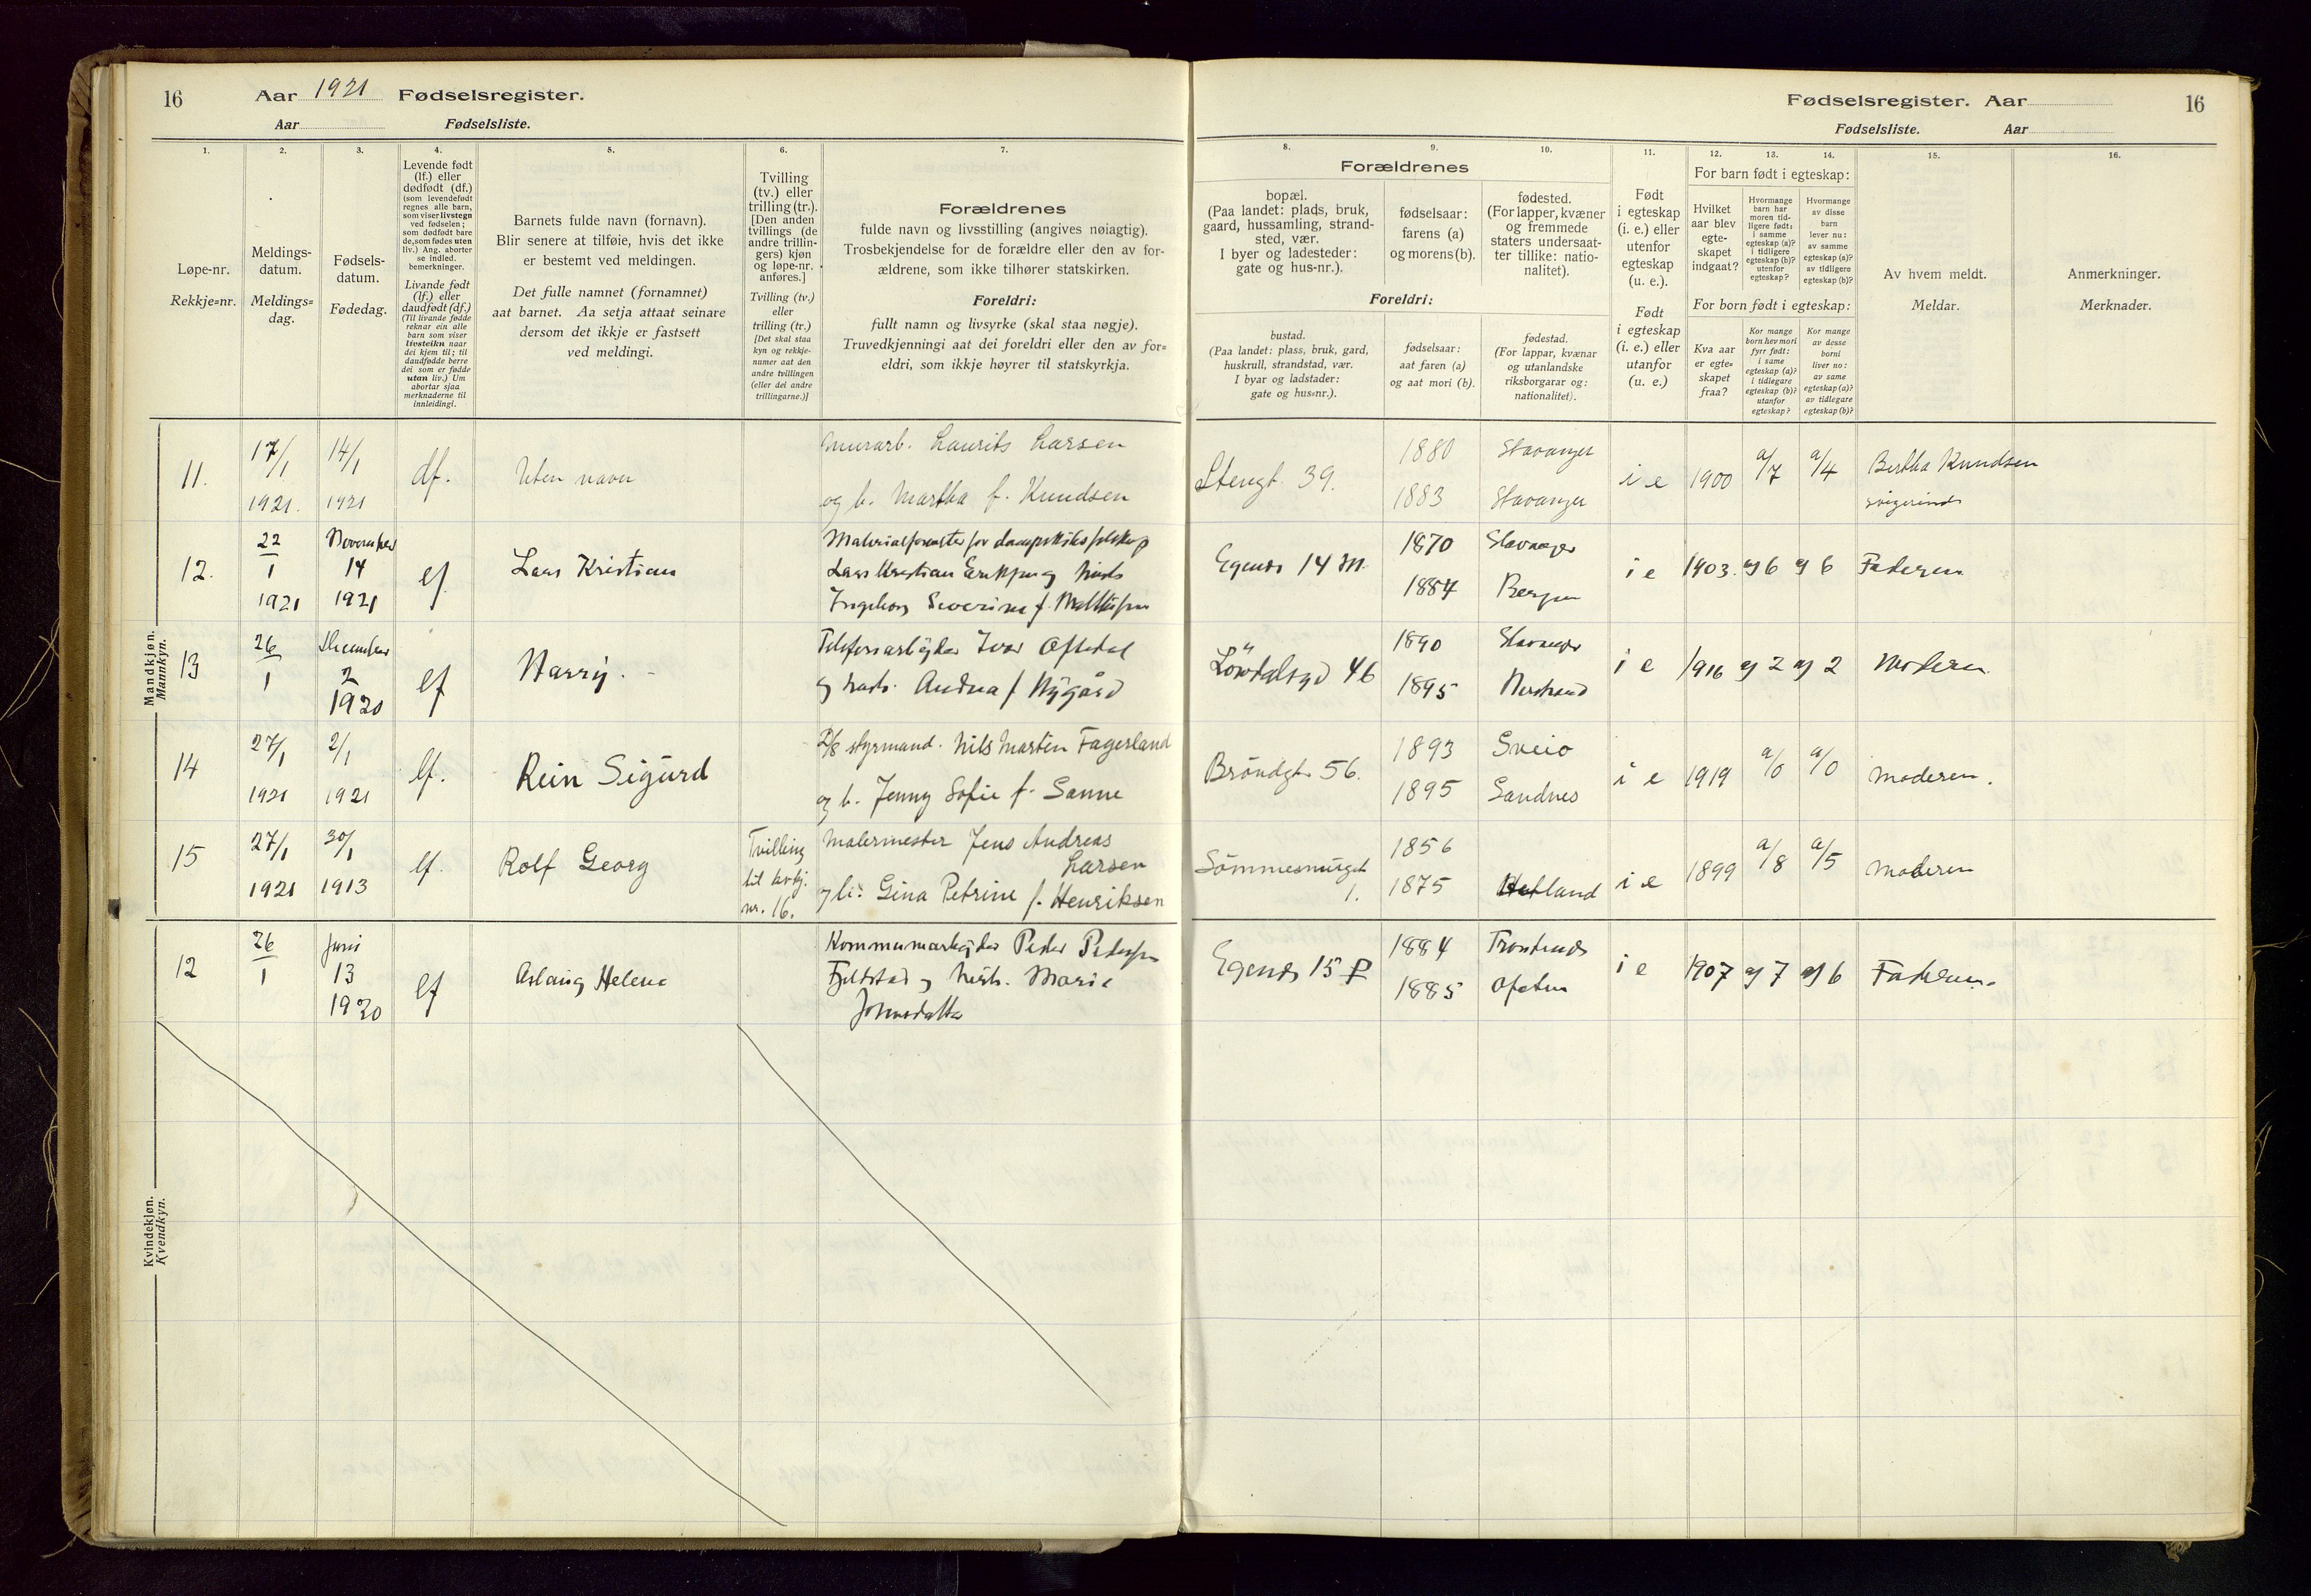 16
Aar 1921 Fødselsregister.
Aar Fødselsliste.
Fødselsregister. Aar
16
Fødselsliste. Aar
1.
2.
3.
4.
5.
6.
7.
8.
9.
10.
11.
12.
13.
14.
15.
16.
Løpe-nr.
Rekkje=nr.
Meldings-
datum.
Meldings=
dag.
Fødsels-
datum.
Fødedag.
Levende født
(lf.) eller
dødfødt (df.)
(som levendefødt
regnes alle barn,
som viser livstegn
ved fødselen;
som dødfødt bare
de, som fødes uten
liv.) Ang. aborter
se indled.
bemerkninger.
Livande født
(lf.) eller
daudfødt (df.)
(Til livande fødde
reknar ein alle
barn som viser
livsteikn naar
dei kjem til; til
daudfødde berre
dei som er fødde
utan liv.) Um
abortar sjaa
merknaderne til
innleidingi.
Barnets fulde navn (fornavn).
Blir senere at tilføie, hvis det ikke
er bestemt ved meldingen.
Det fulle namnet (fornamnet)
aat barnet. Aa setja attaat seinare
dersom det ikkje er fastsett
ved meldingi.
Tvilling
(tv.) eller
trilling (tr.).
[Den anden
tvillings (de
andre trillin-
gers) kjøn
og løpe-nr.
anføres.]
Tvilling (tv.)
eller
trilling (tr.)
[Det skal staa
kyn og rekkje-
numer aat den
andre tvillingen
(eller dei andre
trillingarne.)]
Forældrenes
fulde navn og livsstilling (angives nøiagtig).
Trosbekjendelse for de forældre eller den av for-
ældrene, som ikke tilhører statskirken.
Foreldri:
fullt namn og livsyrke (skal staa nøgje).
Truvedkjenningi aat dei foreldri eller den av for=
eldri, som ikkje høyrer til statskyrkja.
Forældrenes
bopæl.
(Paa landet: plads, bruk,
gaard, hussamling, strand-
sted, vær.
I byer og ladesteder:
gate og hus-nr.).
fødselsaar:
farens (a)
og morens (b).
fødested.
(For lapper, kvæner
og fremmede
staters undersaat-
ter tillike: natio-
nalitet).
Foreldri:
bustad.
(Paa landet: plass, bruk, gard,
huskrull, strandstad, vær.
I byar og ladstader:
gate og hus=nr.).
fødselsaar:
aat faren (a)
og aat mori (b).
fødestad.
(For lappar, kvænar
og utanlandske
riksborgarar og:
nationalitet).
Født
i egteskap
(i. e.) eller
utenfor
egteskap
(u. e.).
Født
i egteskap
(i. e.) eller
utanfor
(u. e.)
For barn født i egteskap:
Hvilket
aar blev
egte-
skapet
indgaat?
Hvormange
barn har
moren tid-
ligere født:
i samme
egteskap (a)?
i tidligere
egteskap (b)?
utenfor
egteskap?
Hvormange
av disse
barn
lever nu:
av samme
egteskap (a)?
av tidligere
egteskap (b)?
For born født i egteskap:
Kva aar
er egte-
skapet
fraa?
Kor mange
born hev mori
fyrr født:
i same
egteskap (a)?
i tidlegare
egteskap (b)?
utanfor
egteskap?
Kor mange
av desse
borni
liver no:
av same
egteskap (a)?
av tidlegare
egteskap (b)?
Av hvem meldt.
Meldar.
Anmerkninger.
Merknader.
Mandkjøn.
Mannkyn.
11. 17/1 1921. 14/1 1921 df. Uten navn
Murarb. Laurits Larsen
og h. Martha f. Knudsen
Stengt. 39. 1880 Stavanger
1883 Stavanger
i e 1900 a/7 a/4 Bertha Knudsen
svigerinde
12. 22/1 1921 November 14 1921 lf Lars Kristian
Lars Kristian
Ingeborg Severine f.
Egenes 14 M. 1870 Stavanger
1884 Bergen
i e 1903. a/6 a/6 Faderen
13 26/1 December 2 1920 lf Harry.
Telefonarbejder Ivar Oftedal
og hust. Andrea f Nygård
Lövdalsgd 46 1890 Stavanger
1895 Nerstrand
i e 1916 a/2 a/2 Moderen
14 27/1 1921 2/1 1921 lf. Rein Sigurd
styrmand. Nils Martin Fagerland
og h. Jenny Sofie f. Sanne
Bröndgt. 56. 1893 Sveio
1895 Sandnes
i e 1919 a/0 a/0 Moderen.
15 27/1 1921 30/1 1913 lf. Rolf Georg
Tvilling
til
nr. 16.
Malermester Jens Andreas
Larsen
og h. Gina Petrine f. Henriksen
Sömmesmuget
1.
1856
1875 Hetland
i e 1899 a/8 a/5 Moderen
Kvindekjøn.
Kvendkyn.
12 26/1 Juni 13 1920 lf Aslaug Helene
Kommunearbejder Peder Pedersen
Fjeldstad og hust. Marie
Johnsdatter
Egenes 15 P 1884
1885
i e 1907 a/7 a/6 Faderen.